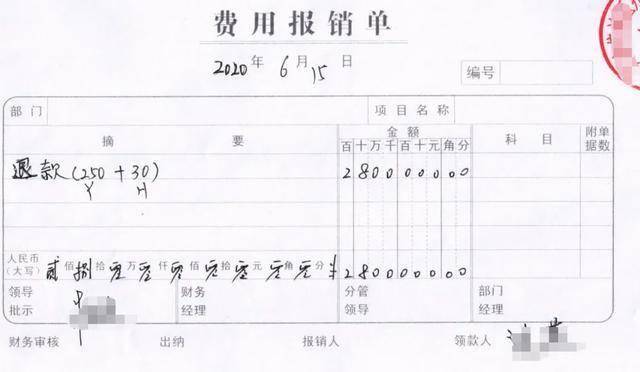 费用报销单
2020年 6月 15日
编号
部门 项目名称
摘要 金额 科目 附单据数
百十万千百十元角分
退款(250+30) 2800000.00
Y H
人民币(大写) 贰佰捌拾零万零仟零佰零拾零元零角零分 ¥2800000.00
领导批示 财务经理 分管领导 部门经理
财务审核 出纳 报销人 领款人